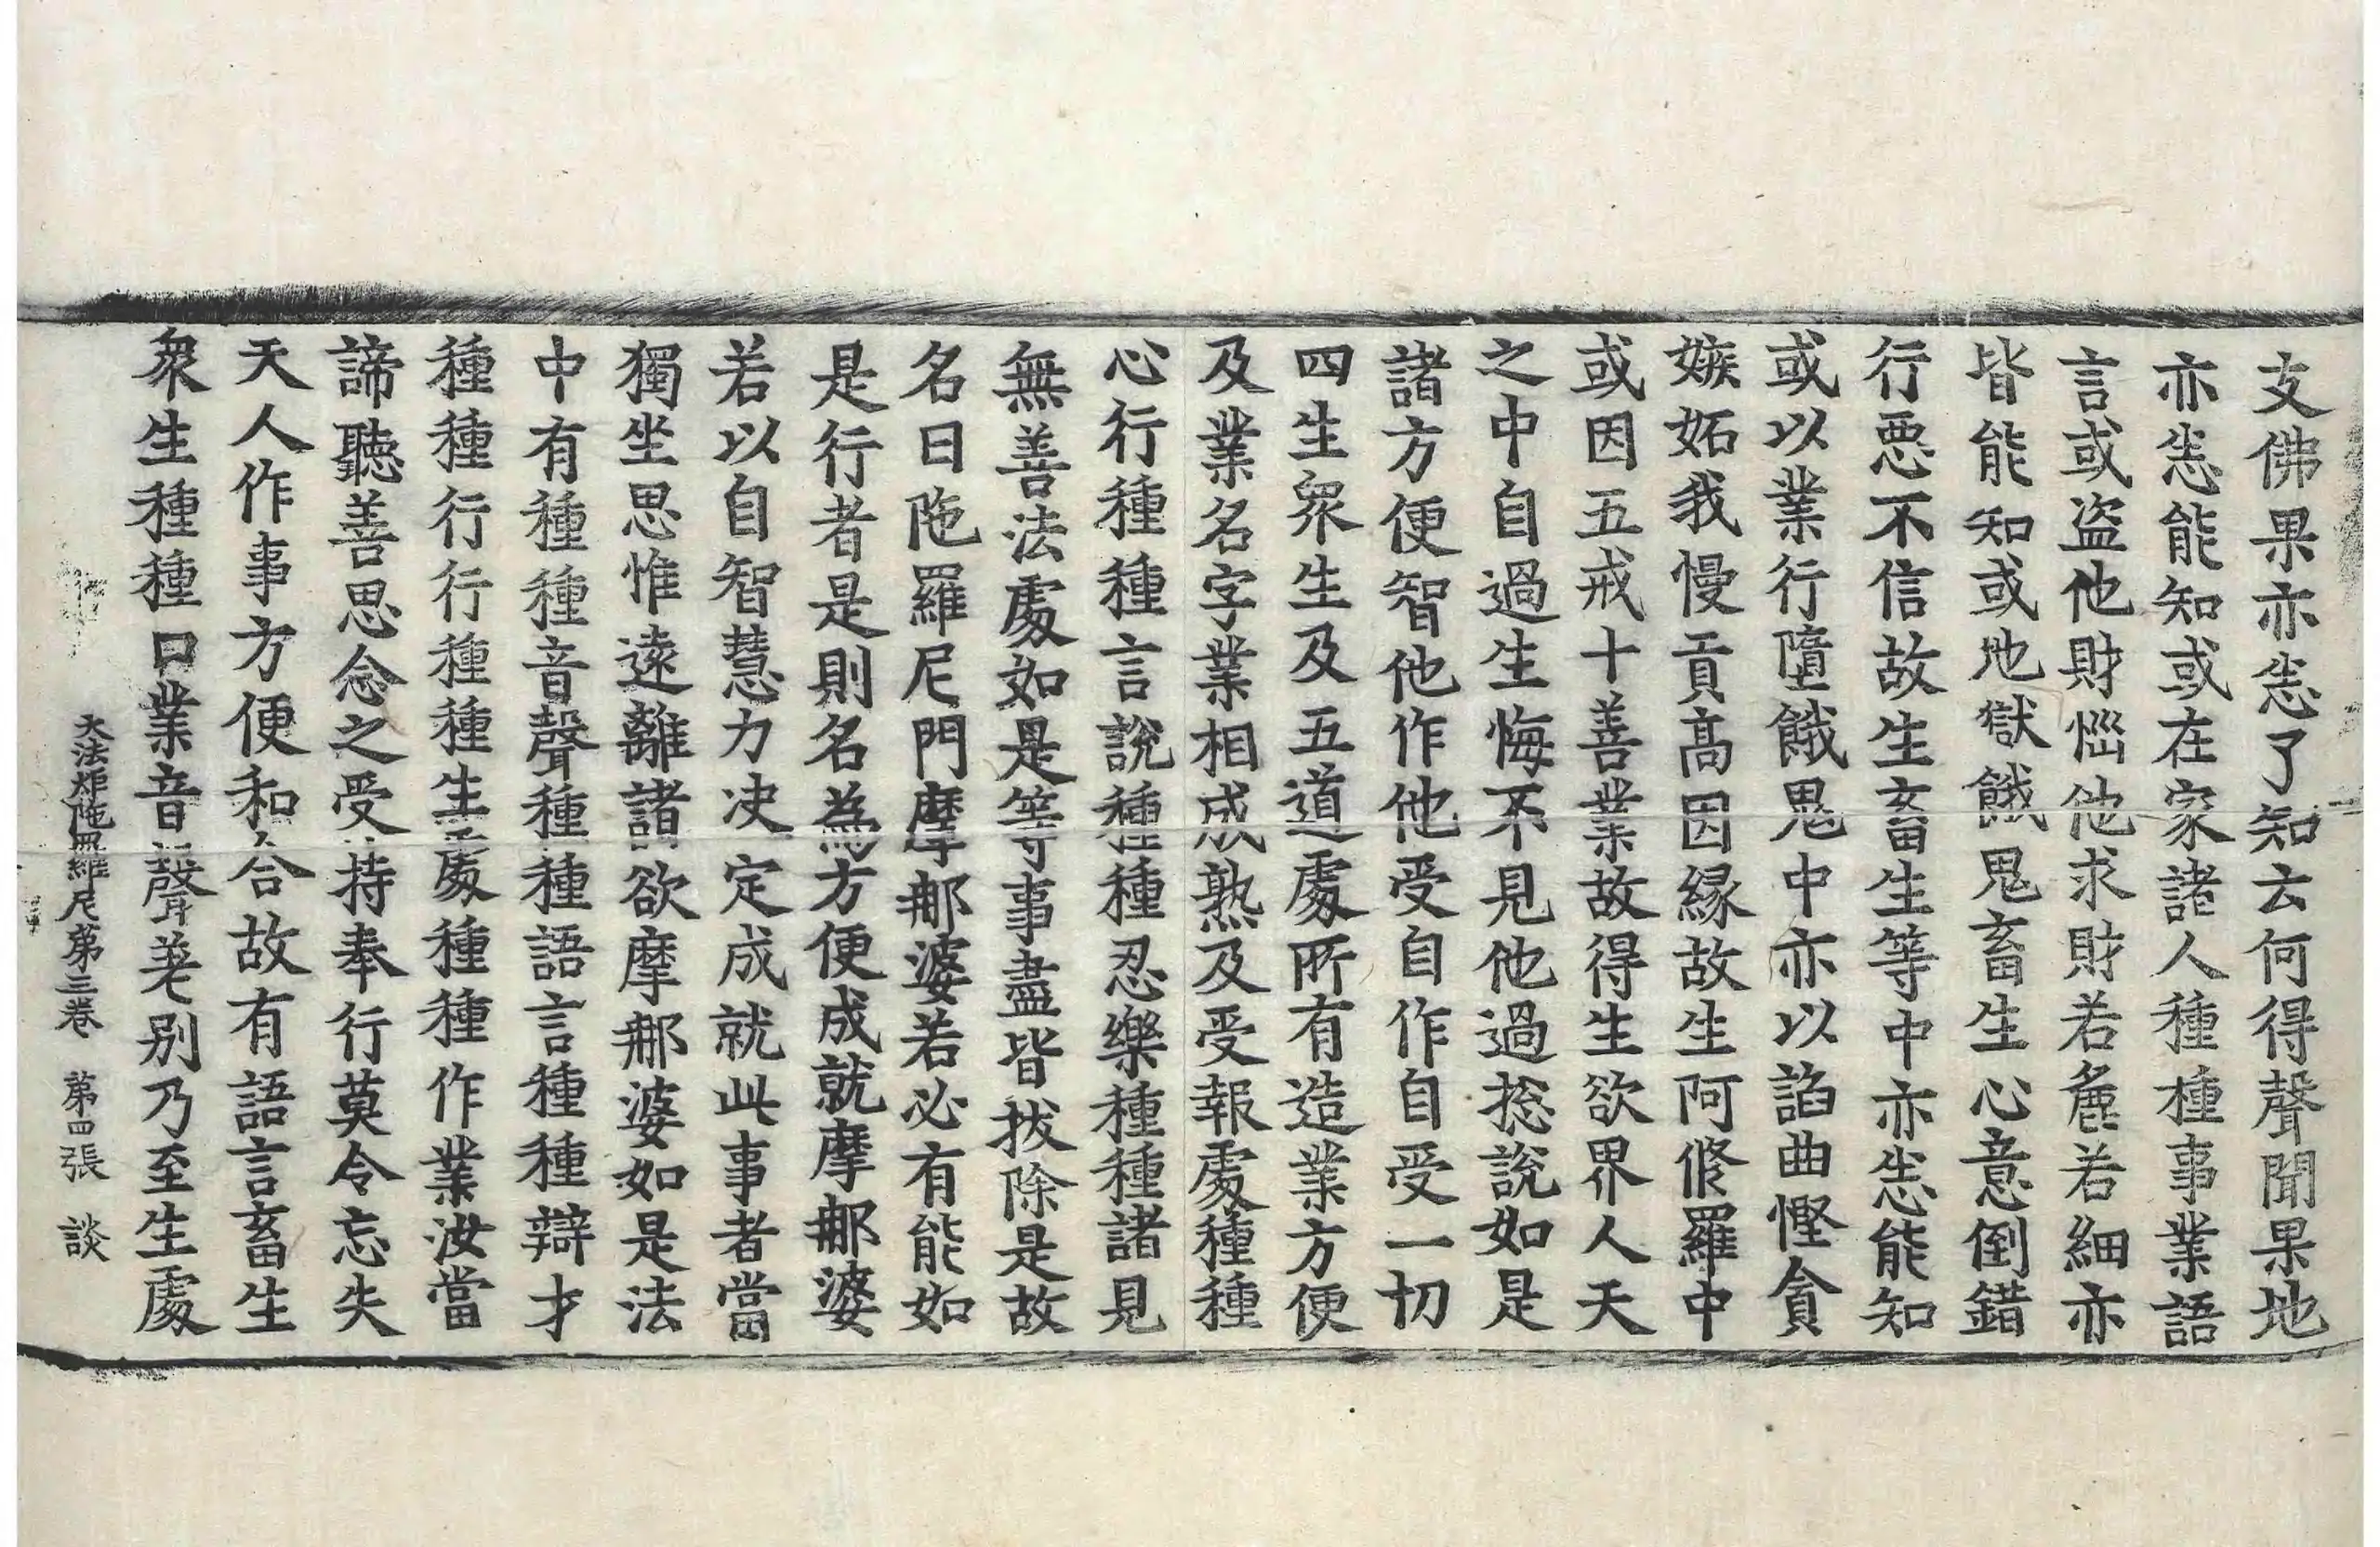 支佛果亦悉了知云何得聲聞果地
亦悉能知或在家諸人種種事業語
言或盗他財惱他求財若麁若細亦
皆能知或地獄餓鬼畜生心意倒錯
行惡不信故生畜生等中亦悉能知
或以業行墮餓鬼中亦以諂曲慳貪
嫉妬我慢貢高因緣故生阿脩羅中
或因五戒十善業故得生欲界人天
之中自過生悔不見他過捴說如是
諸方便智他作他受自作自受一切
四生衆生及五道處所有造業方便
及業名字業相成熟及受報處種種
心行種種言說種種忍樂種種諸見
無善法處如是等事盡皆拔除是故
名曰陁羅尼門摩那婆若必有能如
是行者是則名為方便成就摩那婆
若以自智慧力決定成就此事者當
獨坐思惟遠離諸欲摩那婆如是法
中有種種音聲種種語言種種辯才
種種行行種種生處種種作業汝當
諦聽善思念之受持奉行莫令忘失
天人作事方便和合故有語言畜生
衆生種種口業音聲差別乃至生處
大法炬陁羅尼第三卷 第四張 談